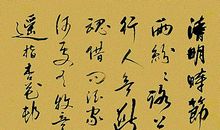 清明時節
雨紛紛路上
行人欲斷
魂借問酒家
何處有牧童
遙指杏花村